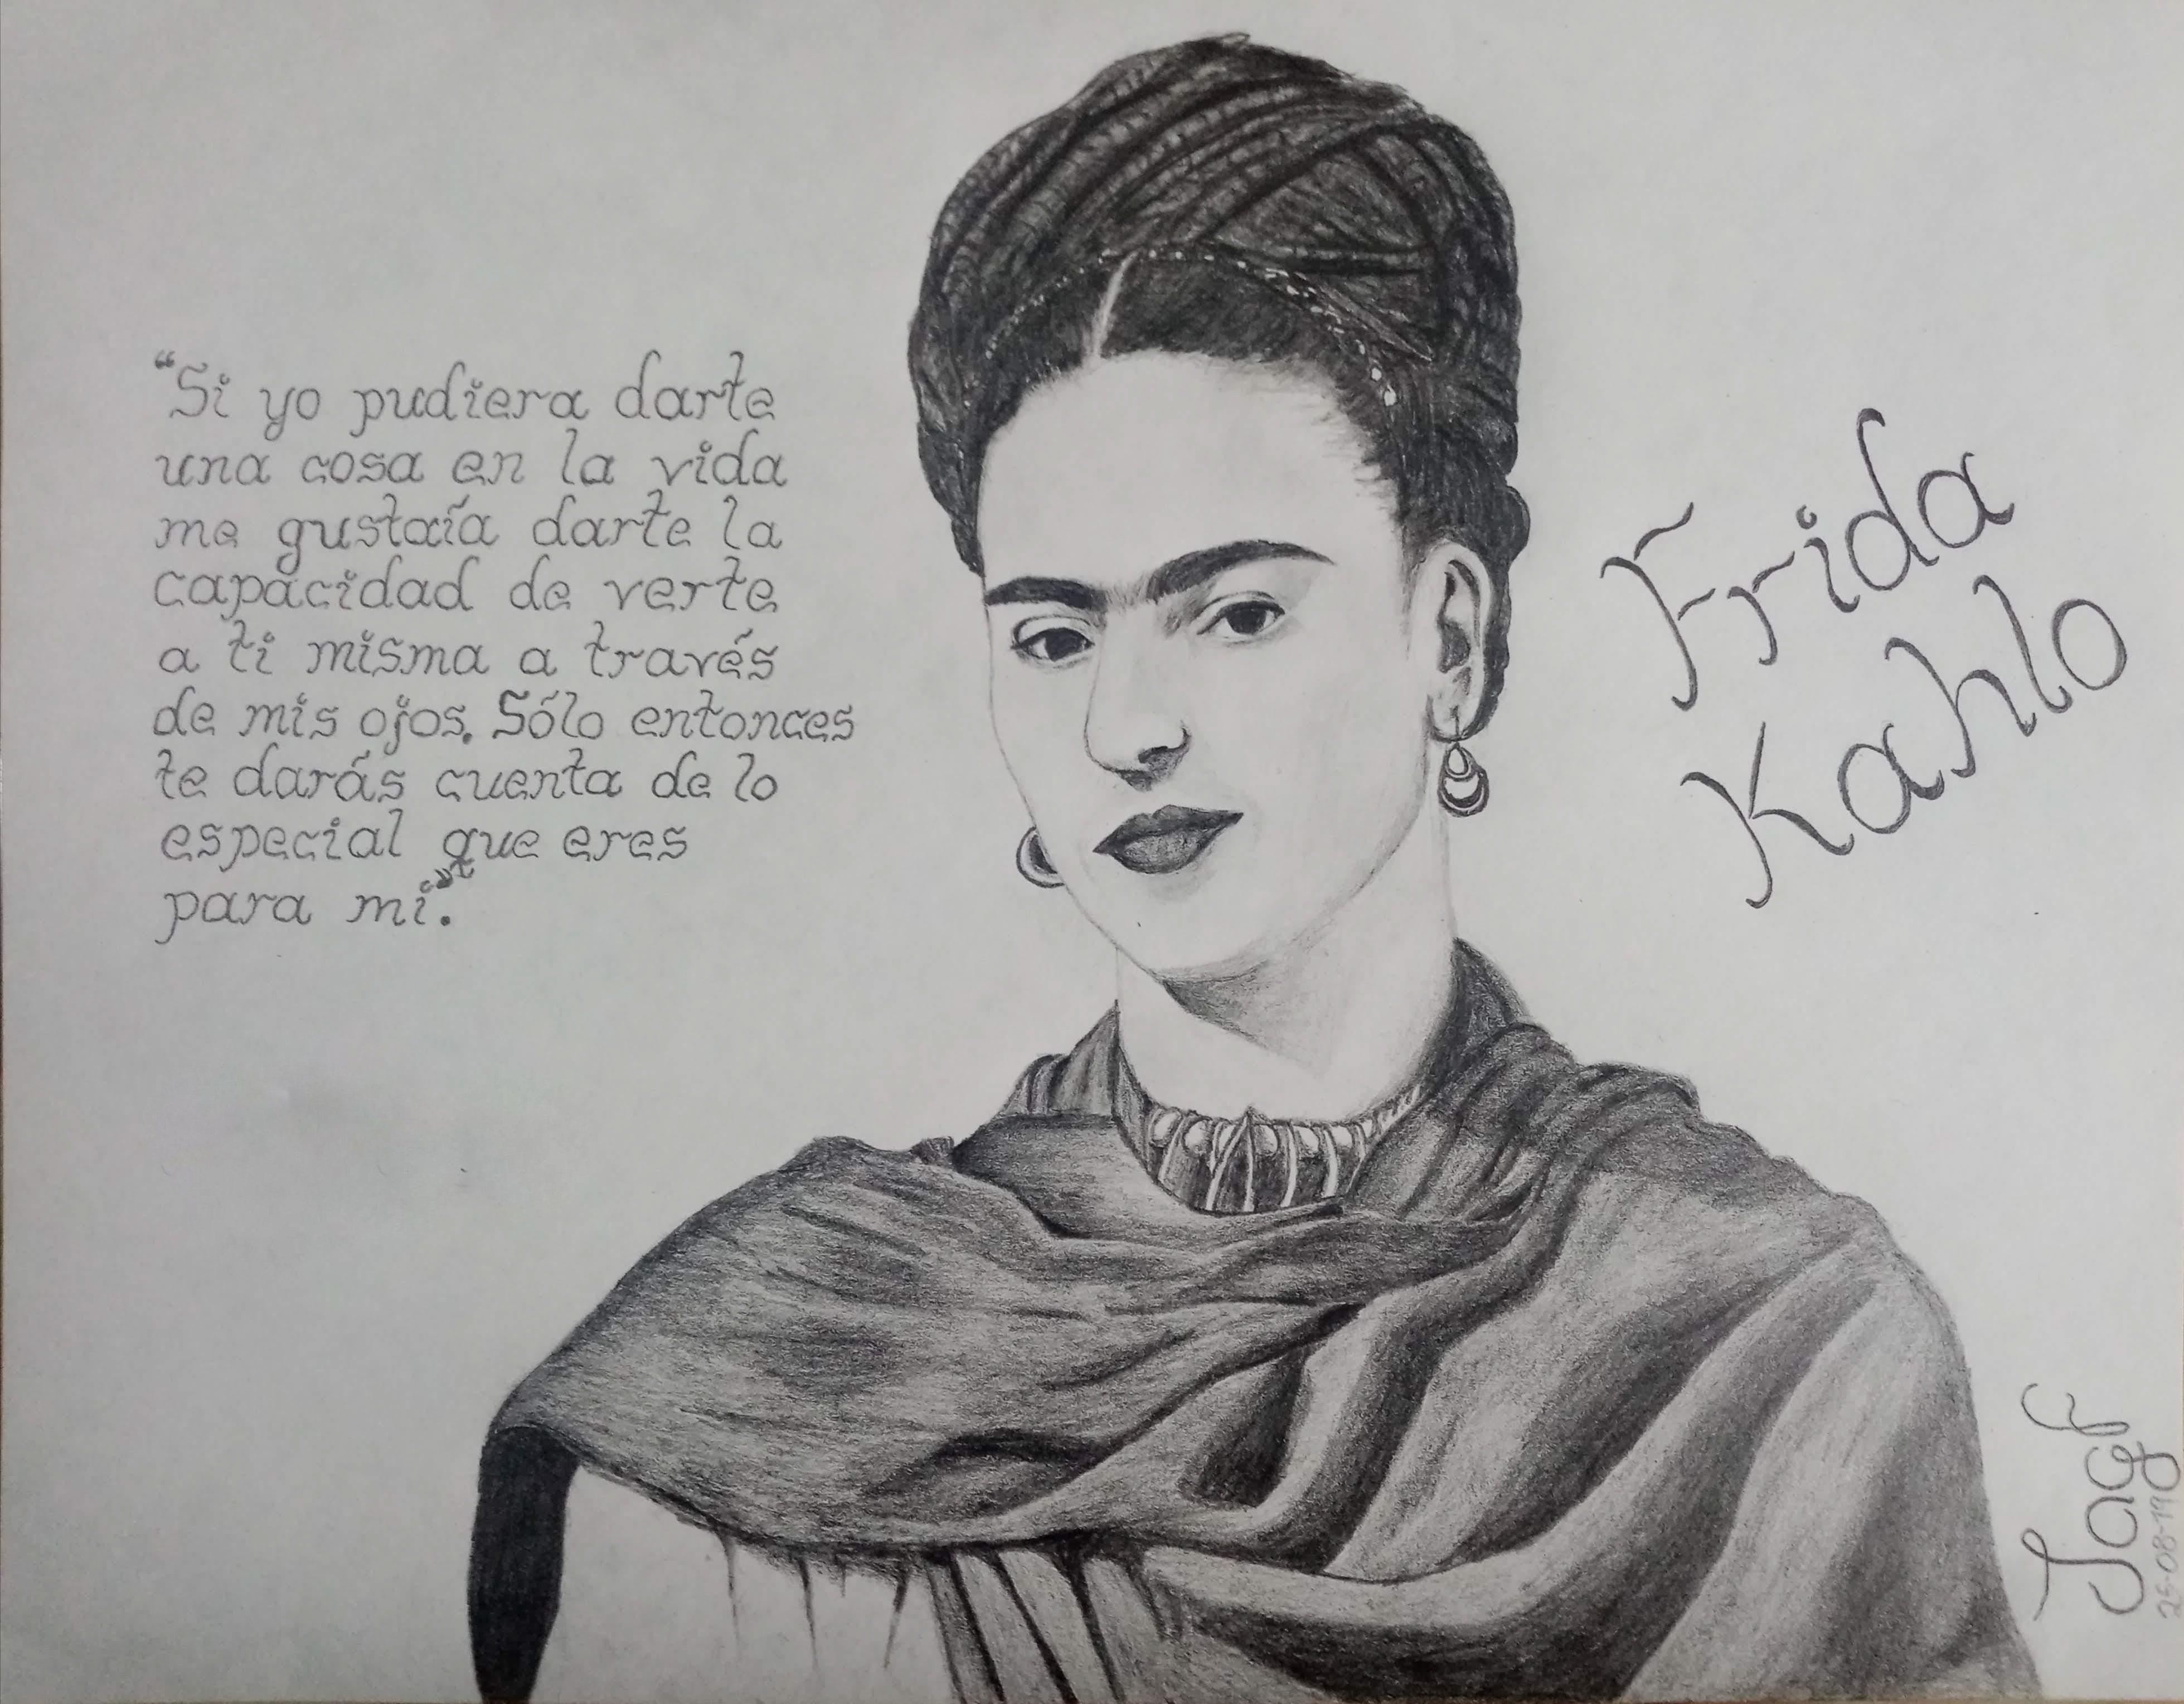 “Si yo pudiera darte
una cosa en la vida
me gustaía darte la
capacidad de verte
a ti misma a través
de mis ojos. Sólo entonces
te darás cuenta de lo
especial que eres
para mi”.
Frida
Kahlo
Jagf